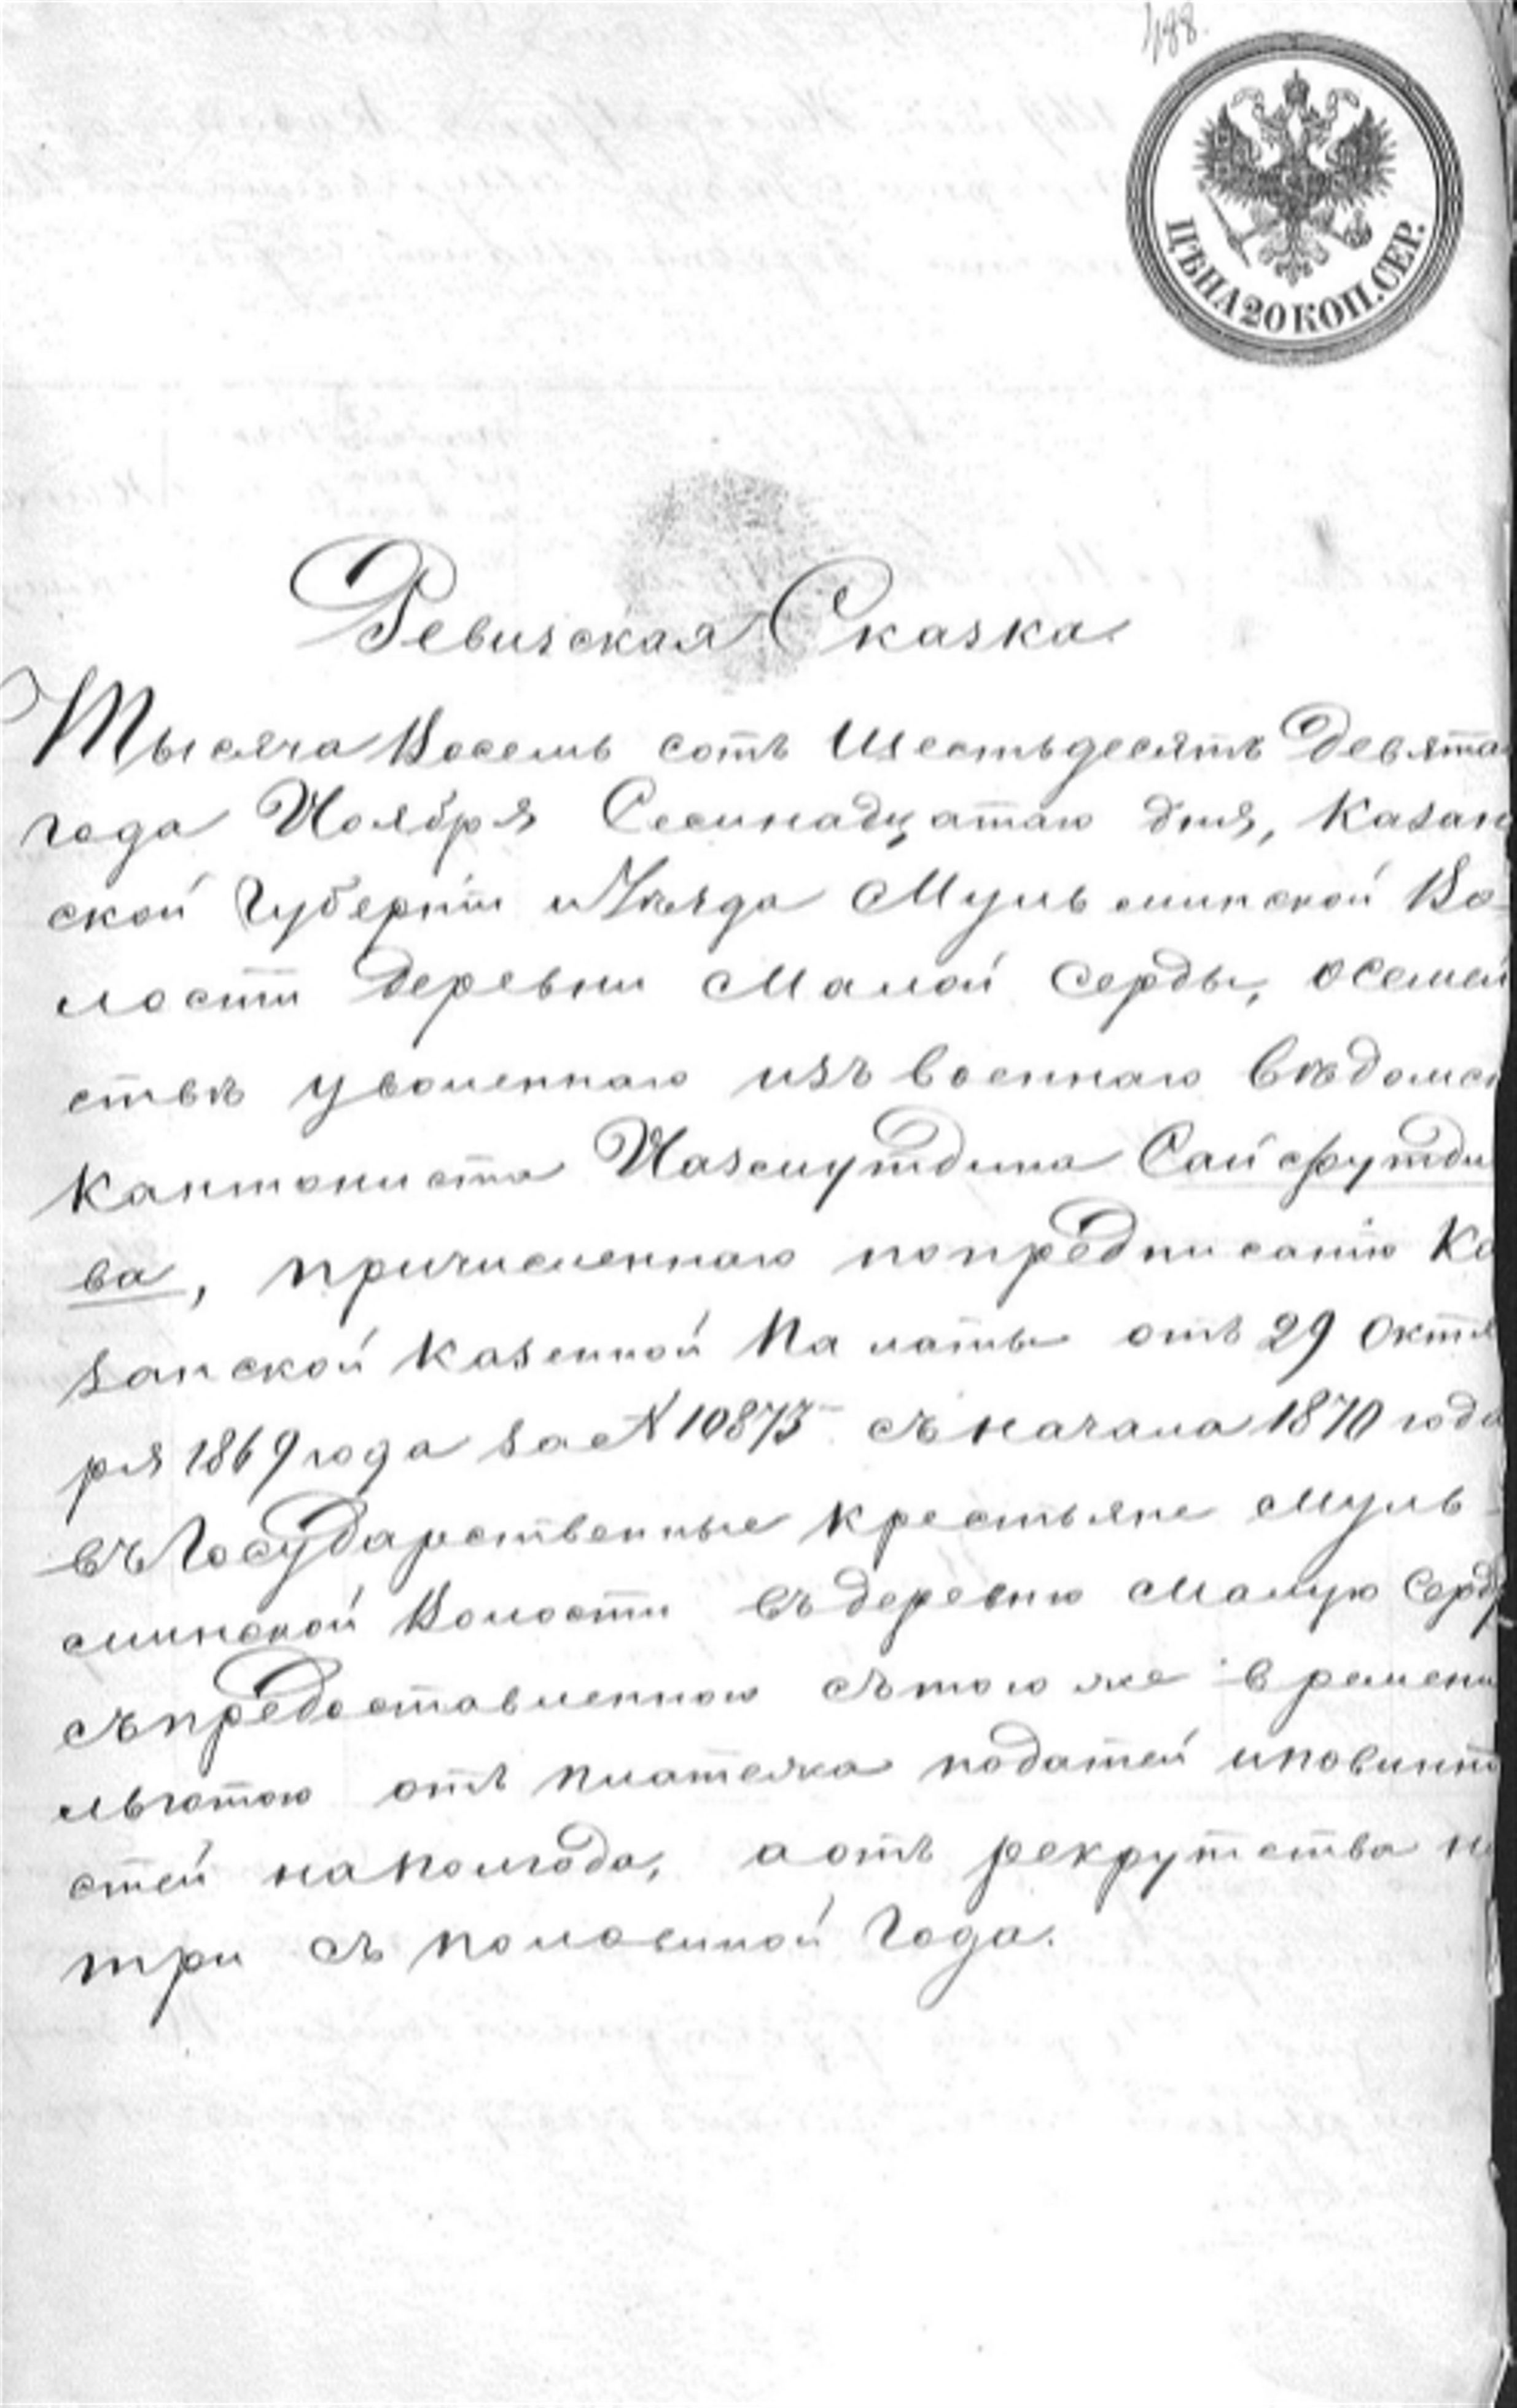 188.
ЦѢНА 20 КОП. СЕР.
Ревизская Сказка.
Тысяча Восемь сотъ Шестьдесятъ Девята
года Ноября Семнадцатаго дня, Казан
ской Губерніи и Уѣзда Мульминской Во-
лости Деревни Малой Серды, о семей
ствѣ уволеннаго изъ военнаго вѣдомс
кантониста Назмутдина Сайфутди
ва, причисленнаго по предписанію Ка
занской Казенной Палаты отъ 29 Октя
ря 1869 года за № 10873 съ начала 1870 года
въ Государственные крестьяне Муль-
минской Волости въ деревню Малую Серду
съ предоставленною съ того же времени
льготою отъ платежа податей и повинно
стей на полгода, а отъ рекрутства на
три съ половиной года.